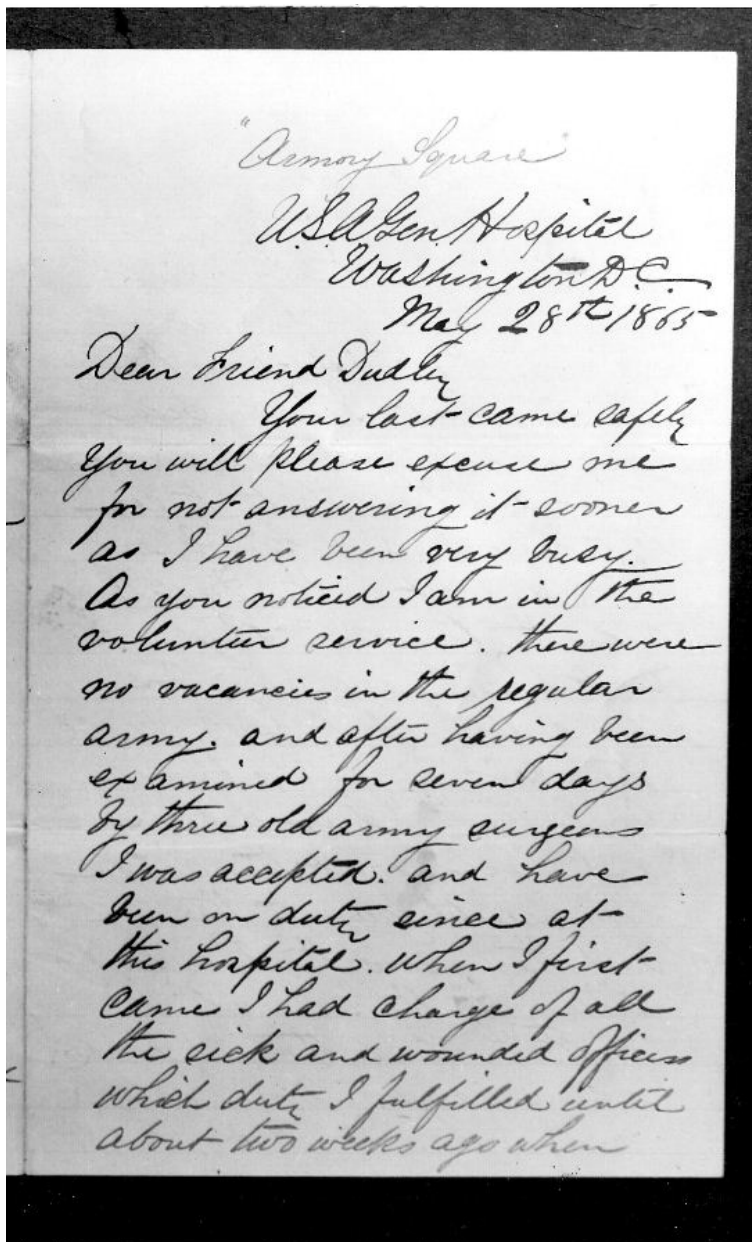 "Armory Square"
U.S.A Gen. Hospital
Washington D.C.
May 28th 1865
Dear Friend Dudley
Your last came safely
You will please excuse me
for not answering it sooner
as I have been very busy.
As you noticed I am in the
volunteer service. there were
no vacancies in the regular
army. and after having been
examined for seven days
by three old army surgeons
I was accepted. and have
been on duty since at
this hospital. when I first
came I had charge of all
the sick and wounded officers
which duty I fulfilled until
about two weeks ago when